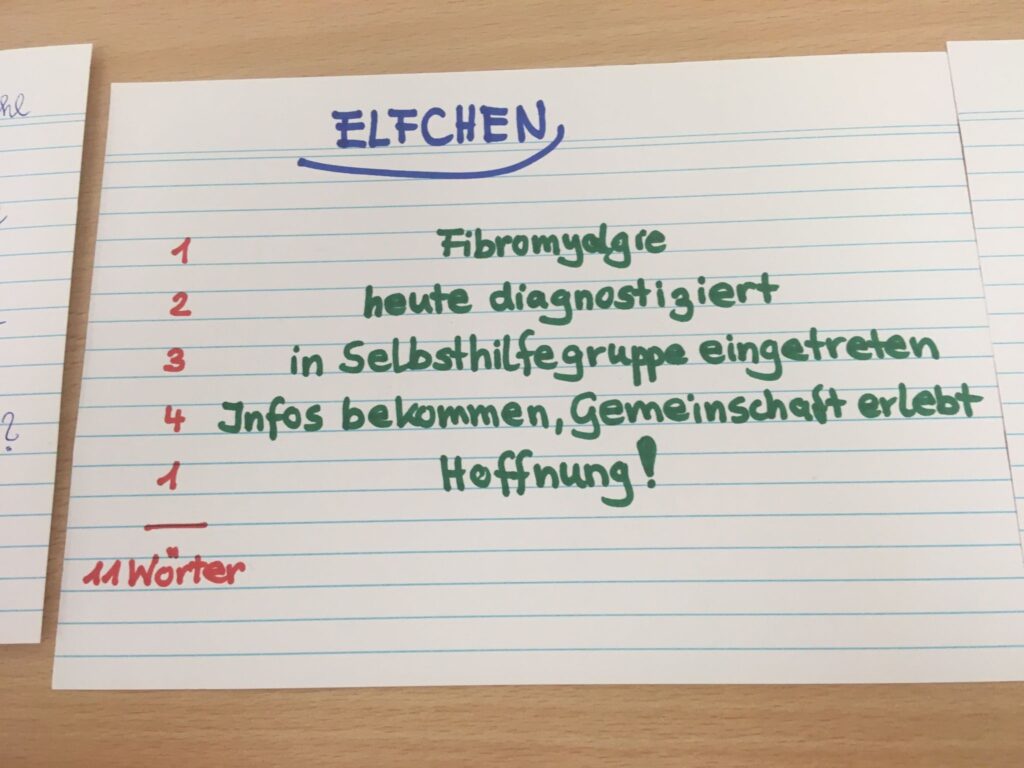 ELFCHEN
1 Fibromyalgie
2 heute diagnostiziert
3 in Selbsthilfegruppe eingetreten
4 Infos bekommen, Gemeinschaft erlebt
1 Hoffnung!
11 Wörter
?